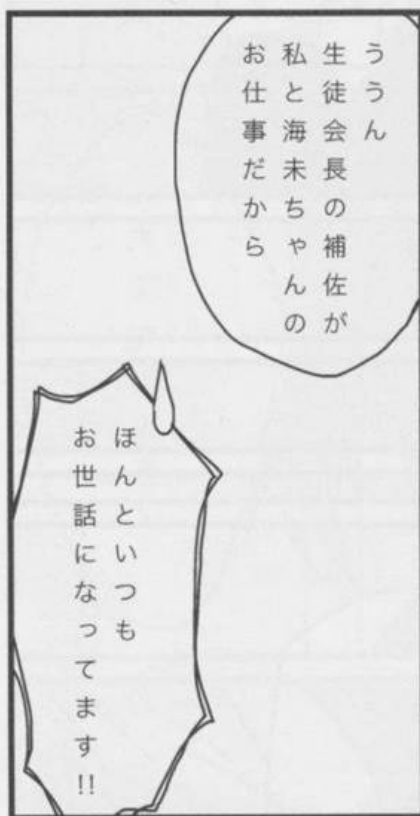 ううん
生徒会長の補佐が
私と海未ちゃんの
お仕事だから
ほんといつも
お世話になってます!!